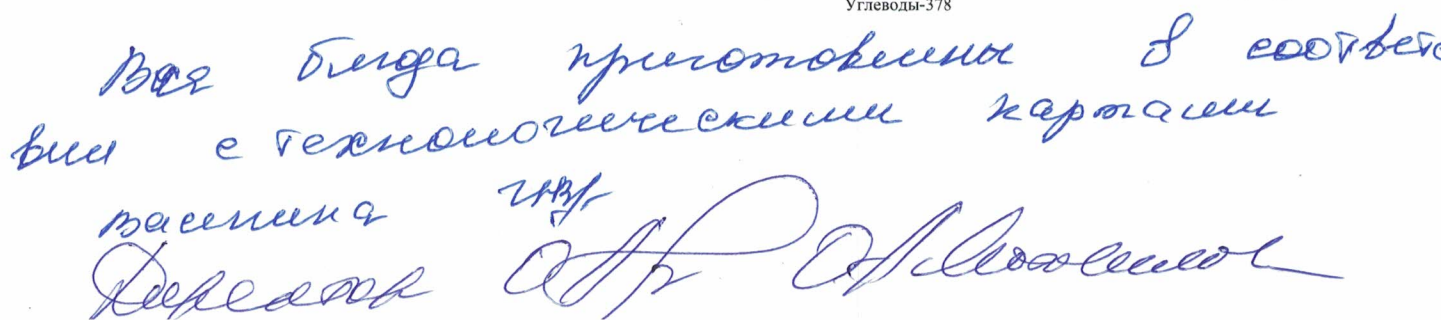 Углеводы-378
Все блюда приготовлены в соответс
вии с технологическими картами
Директор